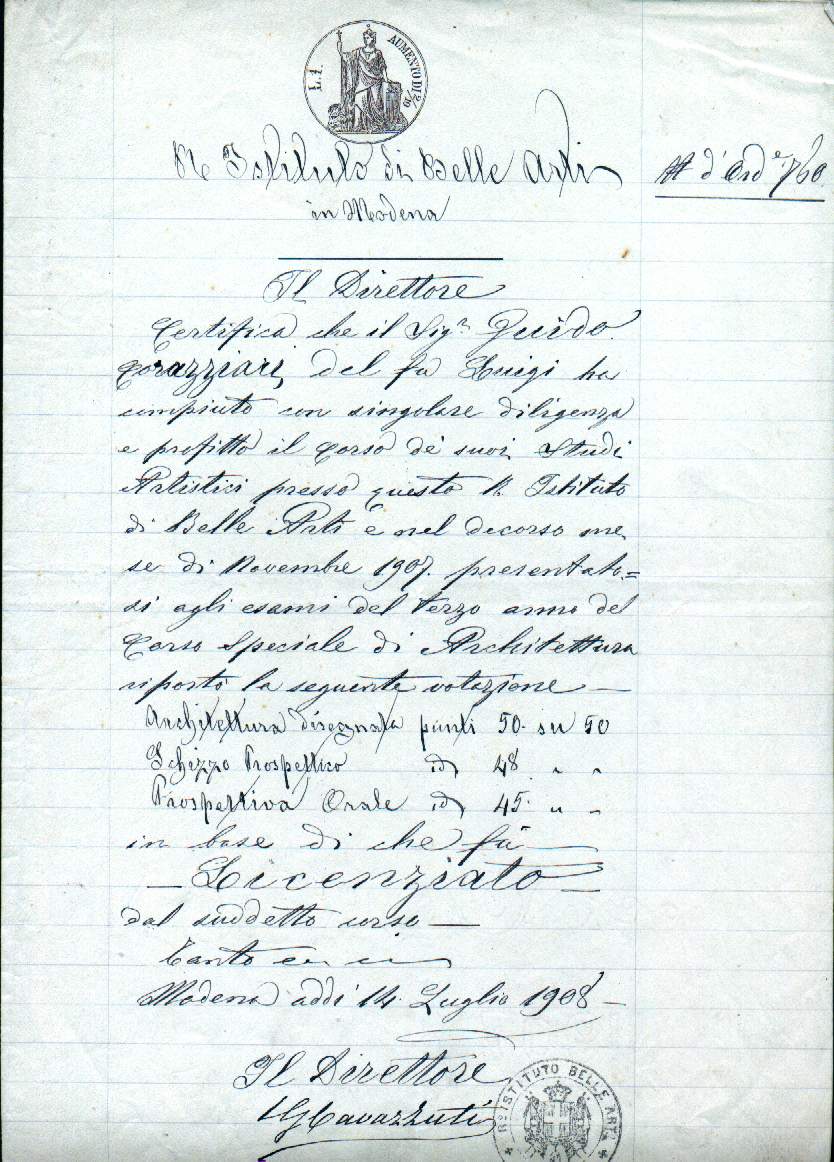 L. 1.
AUMENTO DI 2/10
R Istituto di Belle Arti
in Modena
N d'Ord.e 760
Il Direttore
Certifica che il Sig.r Guido
Corazziari, del fu Luigi ha
compiuto con singolare diligenza
e profitto il Corso de' suoi Studi
Artistici presso questo R. Istituto
di Belle Arti e nel decorso me
se di Novembre 1907. presentato=
si agli esami del terzo anno del
Corso Speciale di Architettura
riportò la seguente votazione —
Architettura disegnata punti 50. su 50
Schizzo Prospettico id 48 " "
Prospettiva Orale id 45. " "
in base di che fù —
— Licenziato —
dal suddetto corso —
Tanto
Modena addì 14. Luglio 1908 —
Il Direttore
G Cavazzuti
R.o ISTITUTO BELLE ARTI